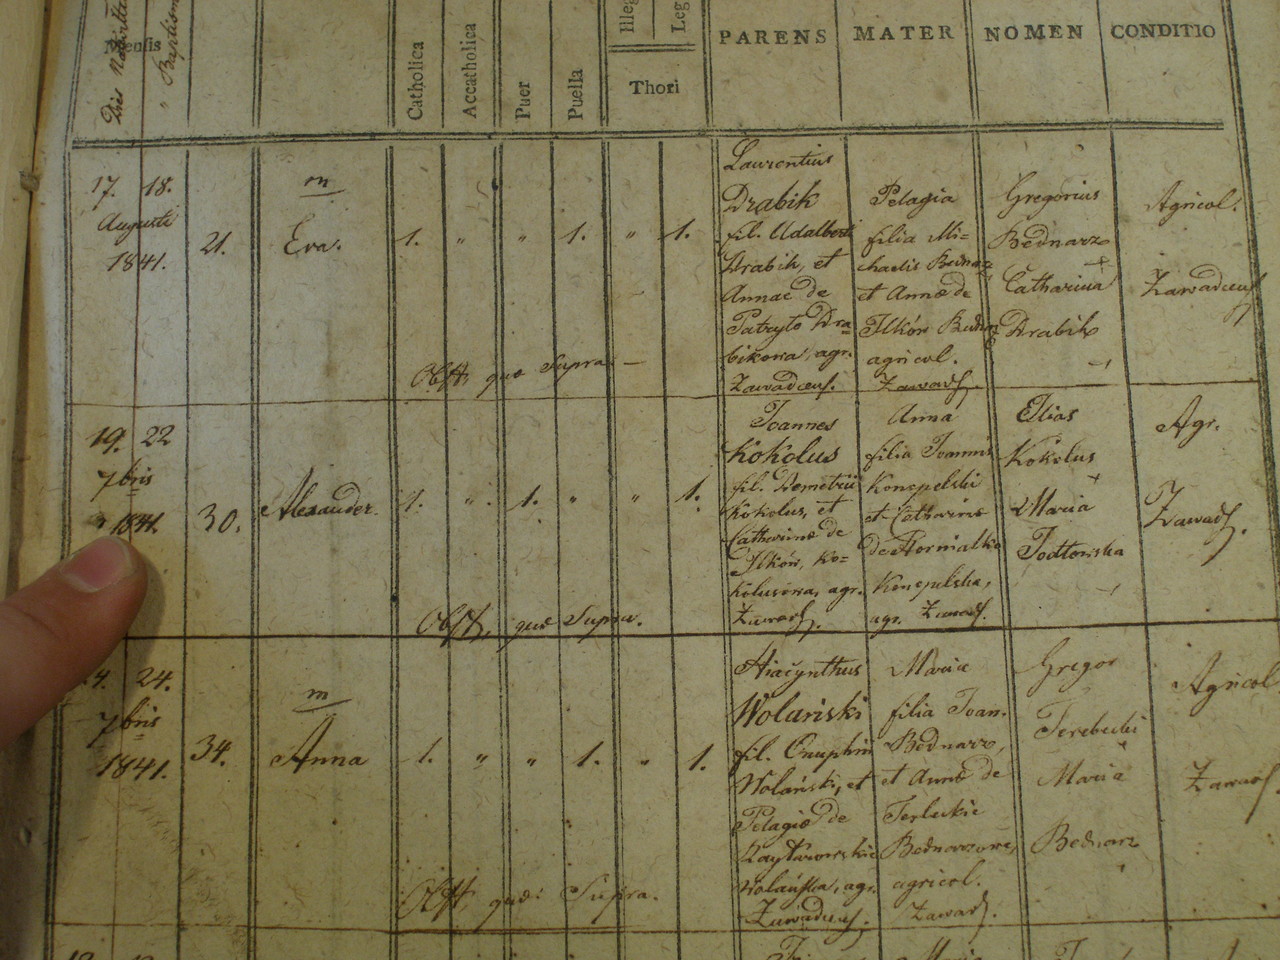 Dies
Mensis
Baptism
Catholica
Accatholica
Puer
Puella
Illeg
Leg
Thori
PARENS
MATER
NOMEN
CONDITIO
17. 18.
Augusti
1841.
21.
m
Eva.
1. " " 1. " 1.
Laurentius
Drabik
fil. Udalberti
Drabik, et
Annae de
Dra-
bikowa, agr.
Zawadcens.
Pelagia
filia Mi-
chaelis Bednarz
et Annæ de
Ilków Bednarz
agricol.
Zawads.
Gregorius
Bednarz
+
Catharina
Drabik
Agricol.
Zawadcens
Obst. quæ Supra —
19. 22
7bris
1841.
30.
Alexander.
1. " 1. " " 1.
Joannes
Kokolus
fil. Demetrii
Kokolus, et
Catharinæ de
Ilków, Ko-
kolusowa, agr.
Zawads.
Anna
filia Joannis
Konopelski
et Catharinæ
de Hornialko
Konopelska,
agr. Zawads.
Elias
Kokolus
+
Maria
Agr.
Zawads.
Obst. quæ Supra.
24.
7bris
1841.
34.
m
Anna
1. " " 1. " 1.
Hiacynthus
Wolański
fil. Onuphrii
Wolański, et
Pelagiæ de
Wolańska, agr.
Zawadcens.
Maria
filia Joan.
Bednarz,
et Annæ de
Terlukie
Bednarzowe,
agricol.
Zawads.
Gregor
Maria
Bednarz
Agricol
Zawads.
Obst. quæ: Supra.